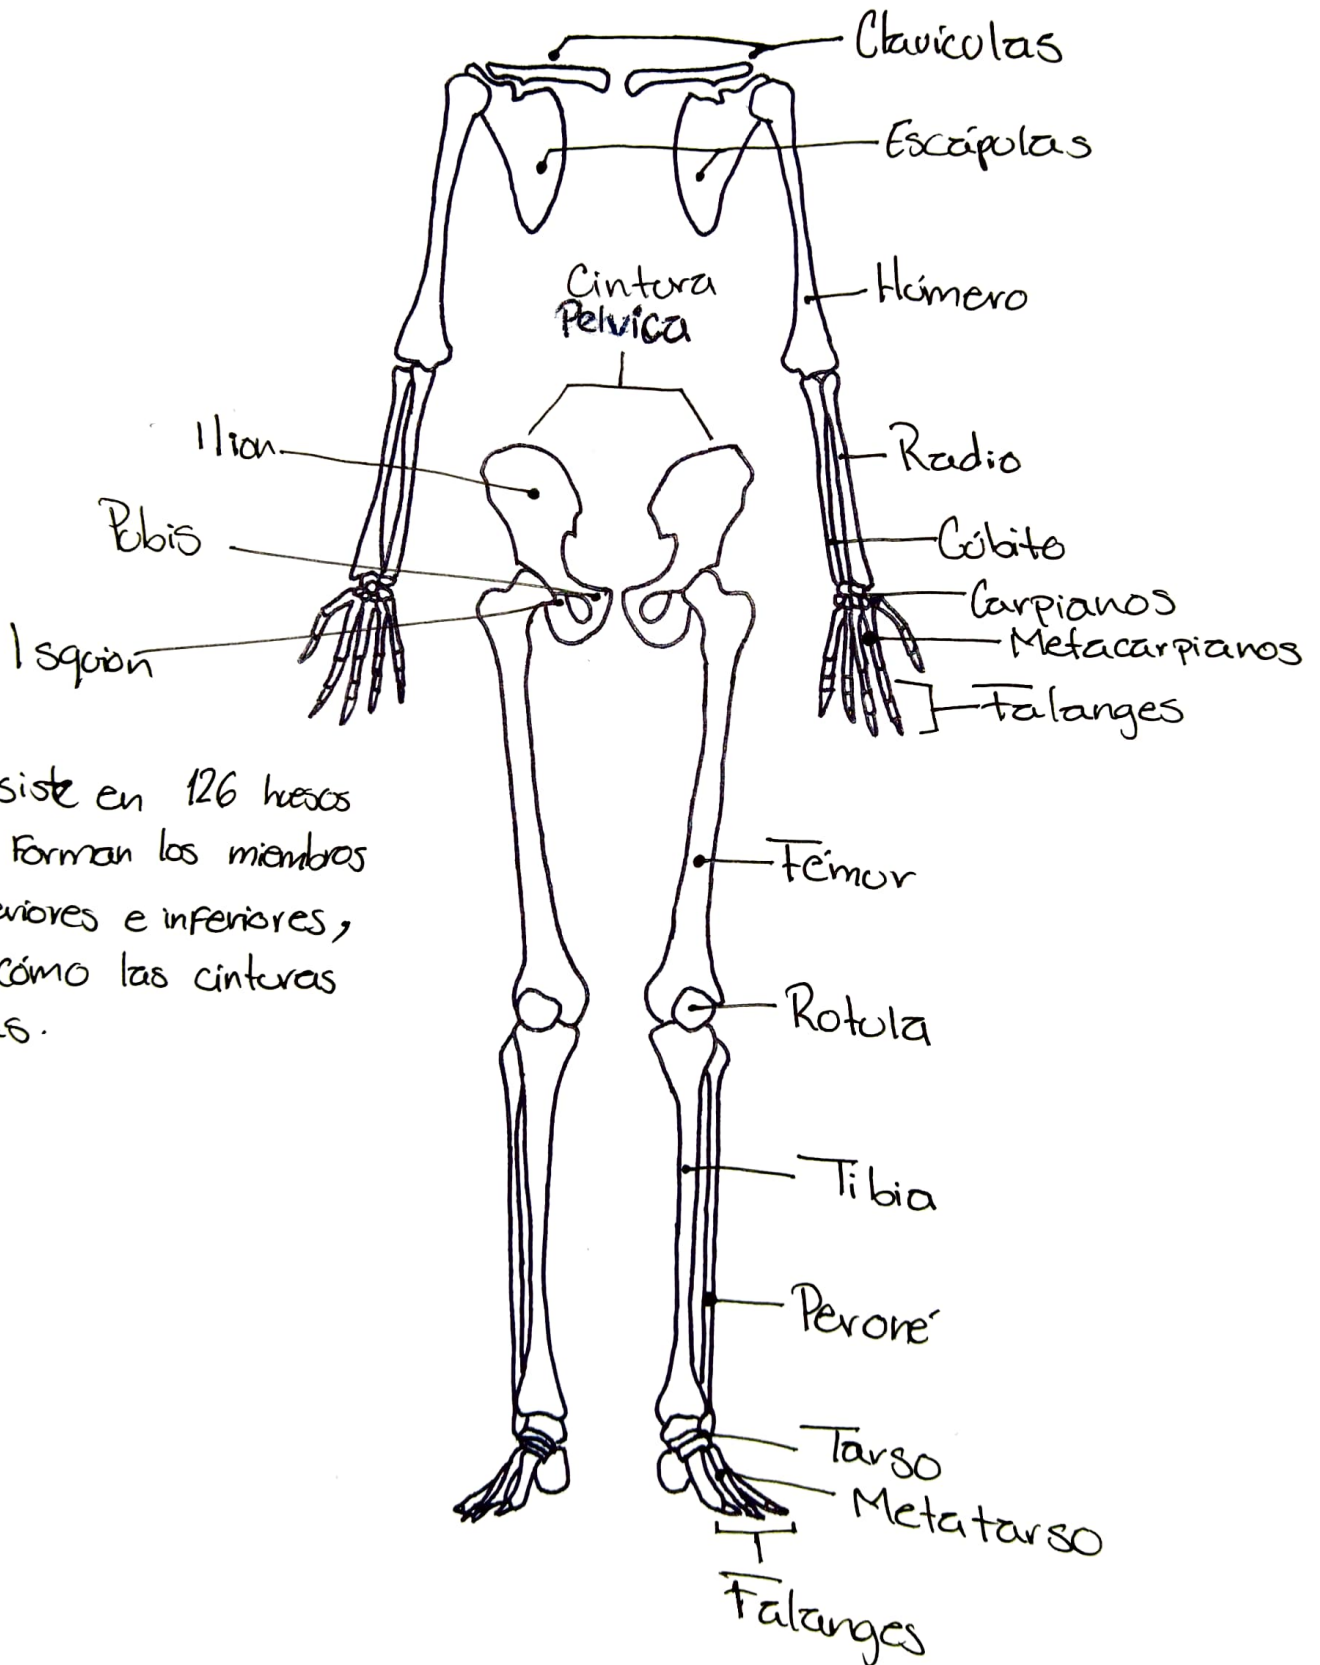 Clavículas
Escápulas
Húmero
Cintura
Pelvica
Ilion
Radio
Pubis
Cúbito
Carpianos
Metacarpianos
Isquion
Falanges
siste en 126 huesos
Forman los miembros
eriores e inferiores,
cómo las cinturas
as.
Fémur
Rotula
Tibia
Peroné
Tarso
Metatarso
Falanges